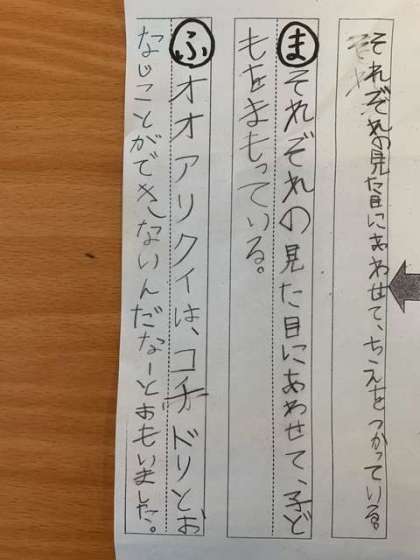 それぞれの見た目にあわせて、ちえをつかっている。
ま それぞれの見た目にあわせて、子ど
もをまもっている。
ふ オオアリクイは、コチドリとお
なじことができないんだなーとおもいました。